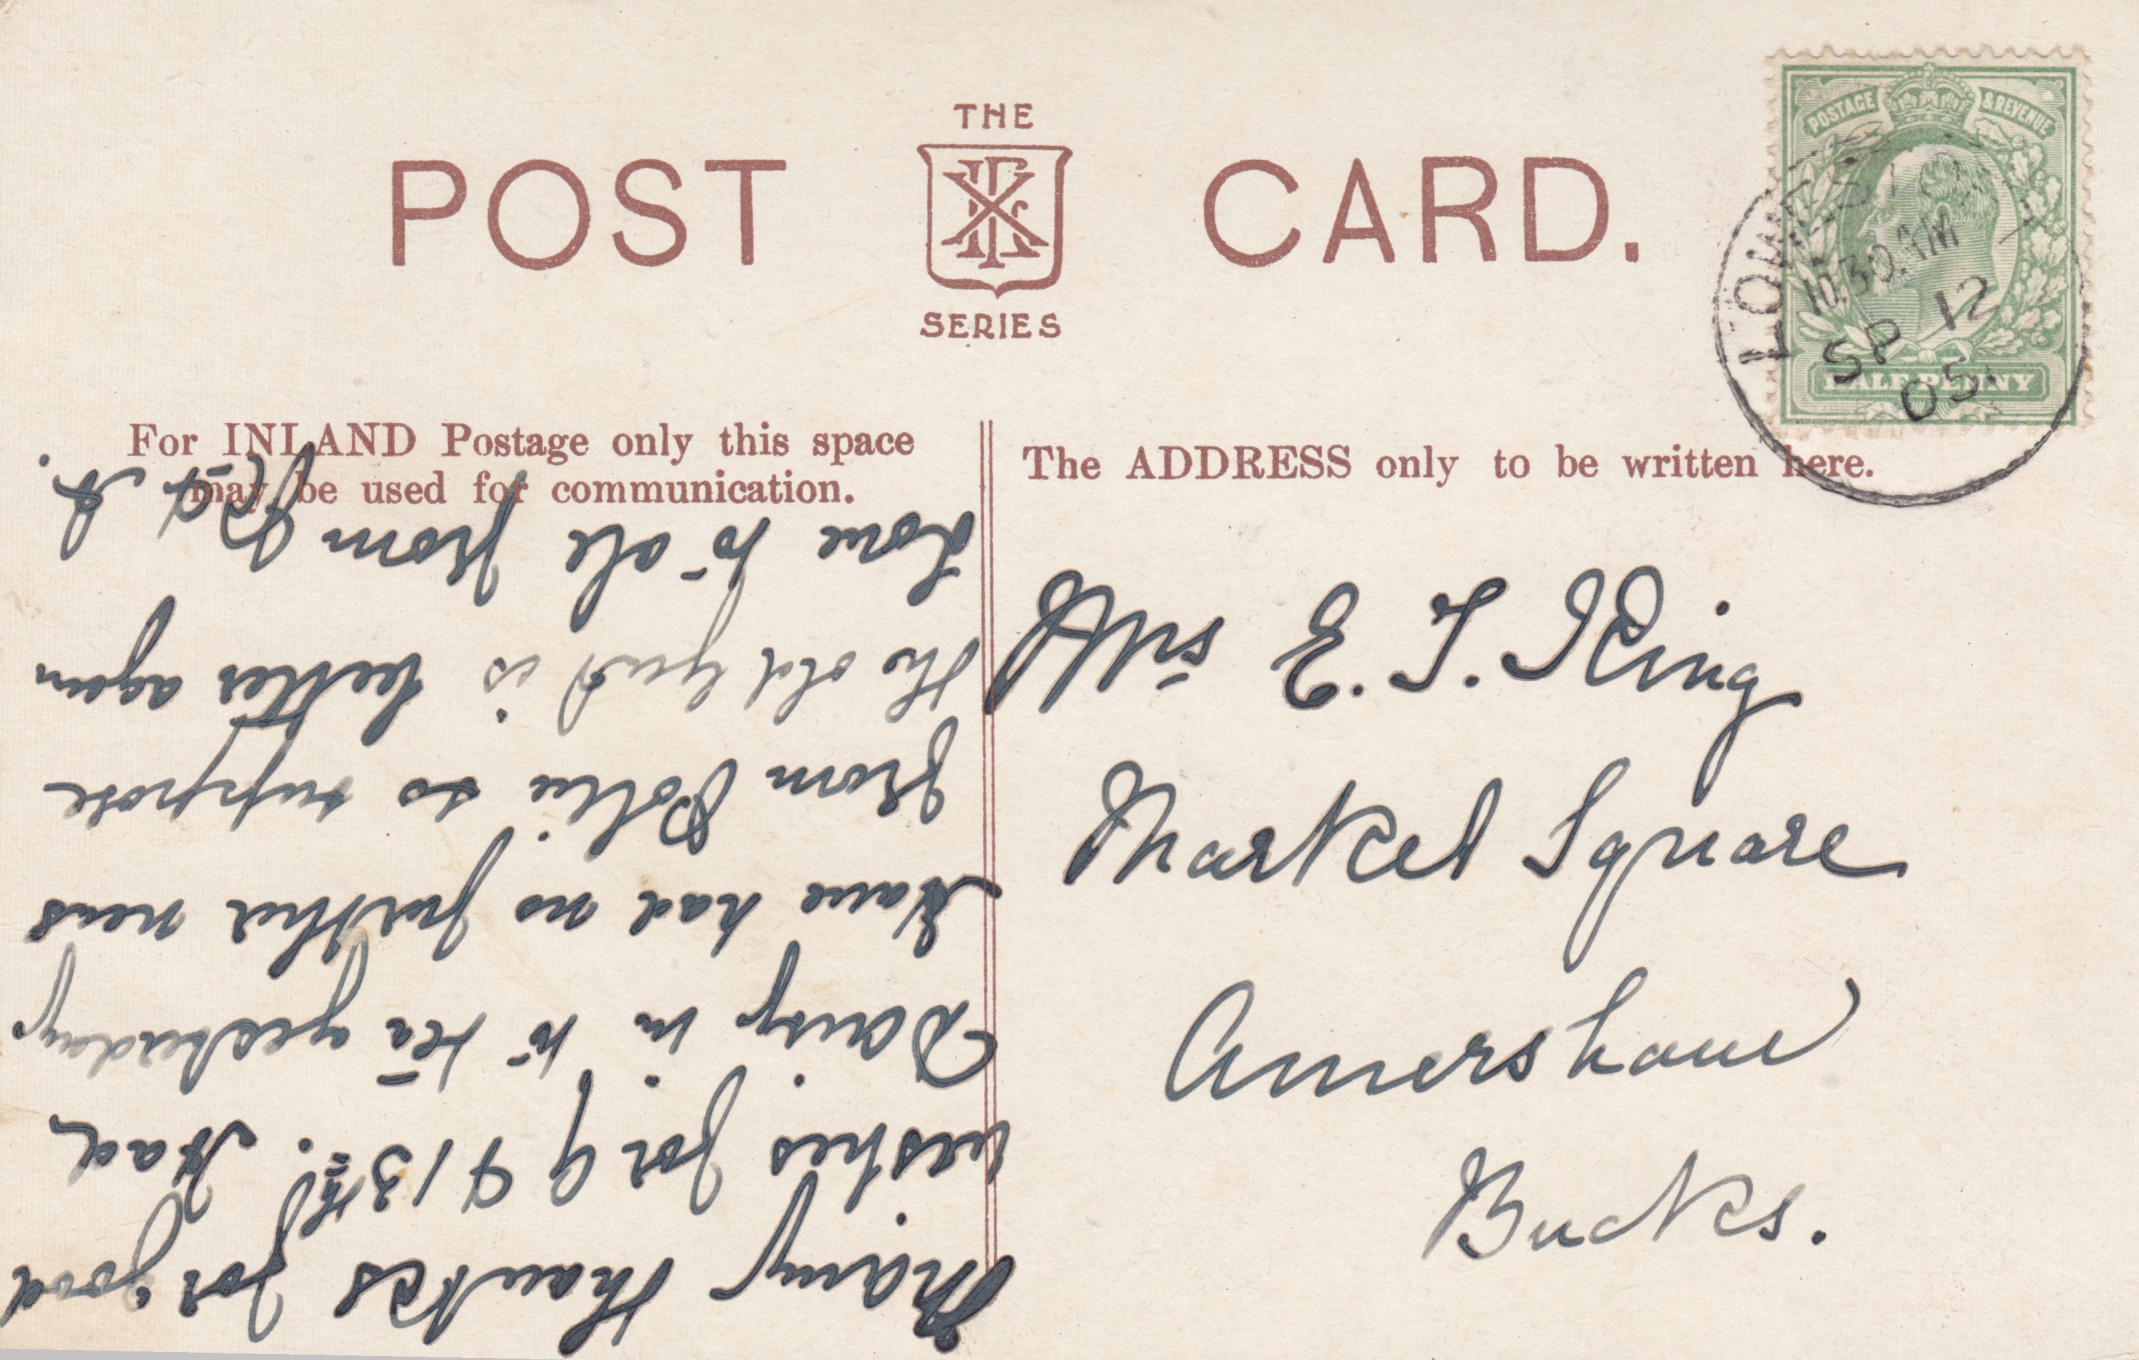 THE
POST CARD.
SERIES
POSTAGE & REVENUE
LOWESTOFT
10.30.AM
SP 12
05
HALFPENNY
For INLAND Postage only this space
may be used for communication.
The ADDRESS only to be written here.
Mrs E. T. King
Market Square
Amersham
Bucks.
Many thanks for good
wishes for 9 & 13th. Had
Daisy in to tea yesterday
Have had no further news
from Pollie so suppose
the old Gent is better again
Love to all from R & A.